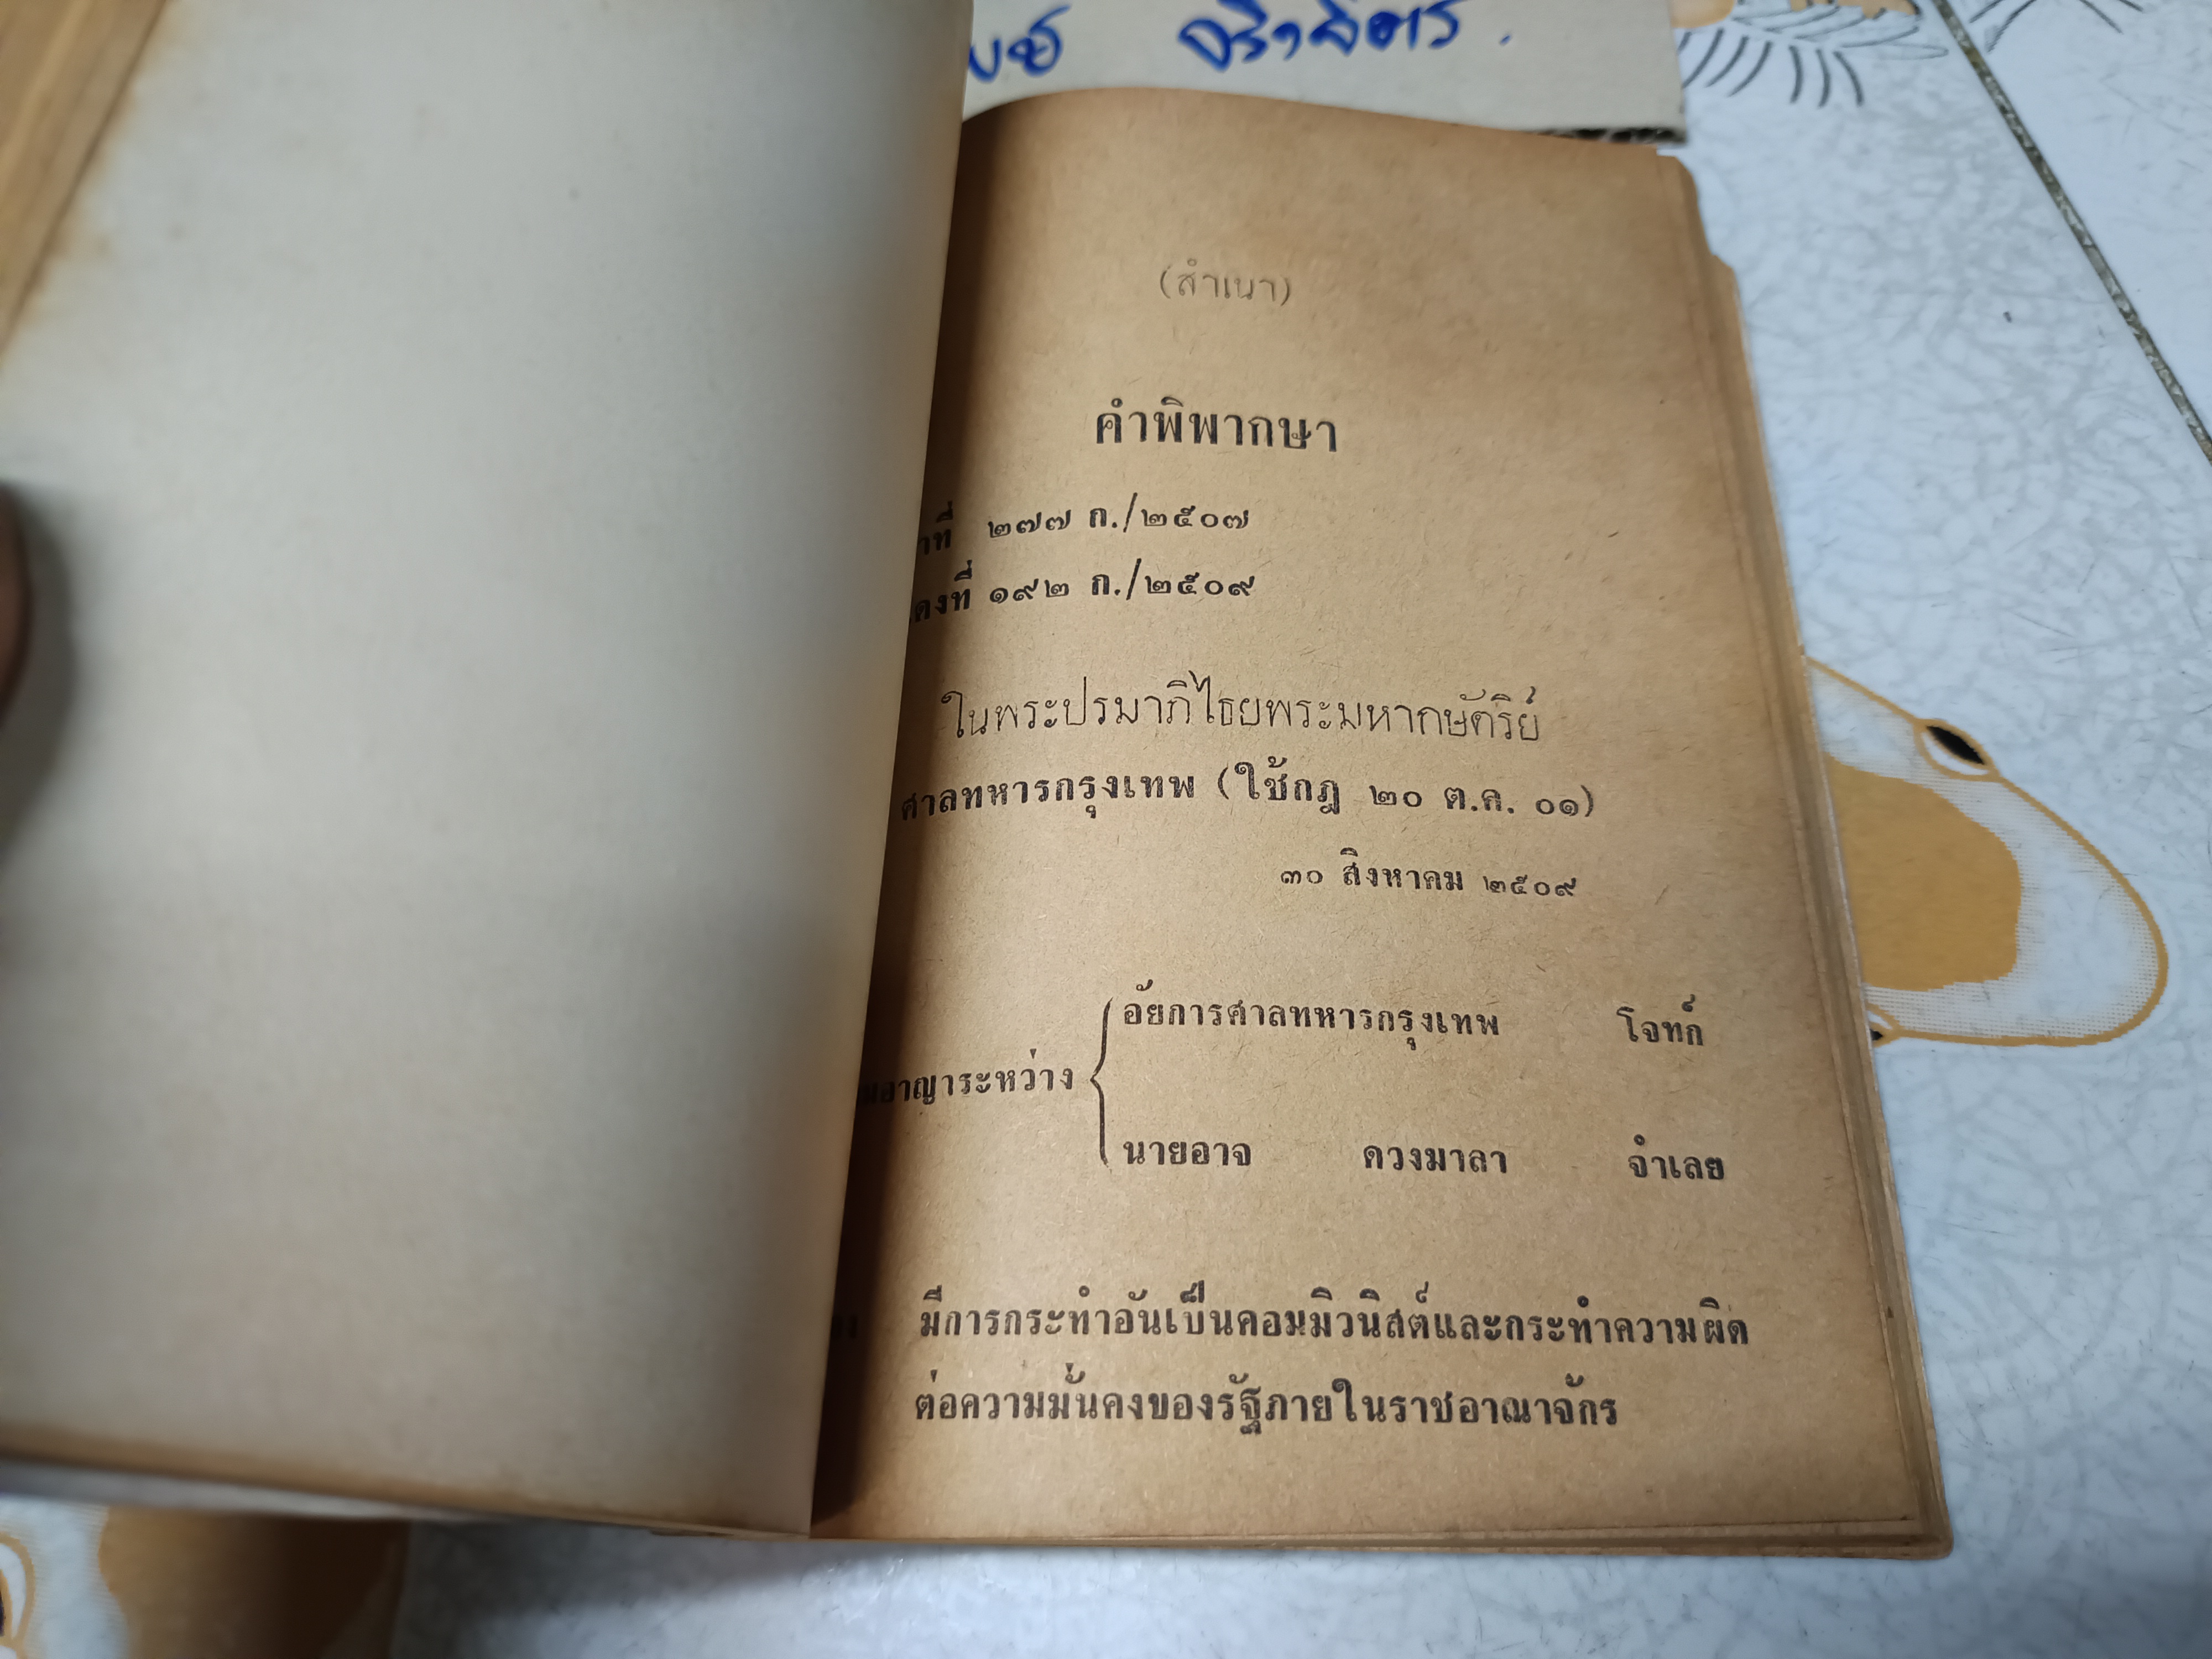 (สำเนา)
คำพิพากษา
ที่ ๒๗๗ ก./๒๕๐๗
ดงที่ ๑๙๒ ก./๒๕๐๙
ในพระปรมาภิไธยพระมหากษัตริย์
ศาลทหารกรุงเทพ (ใช้กฎ ๒๐ ต.ค. ๐๑)
๓๐ สิงหาคม ๒๕๐๙
อัยการศาลทหารกรุงเทพ โจทก์
อาญาระหว่าง
นายอาจ ดวงมาลา จำเลย
มีการกระทำอันเป็นคอมมิวนิสต์และกระทำความผิด
ต่อความมั่นคงของรัฐภายในราชอาณาจักร